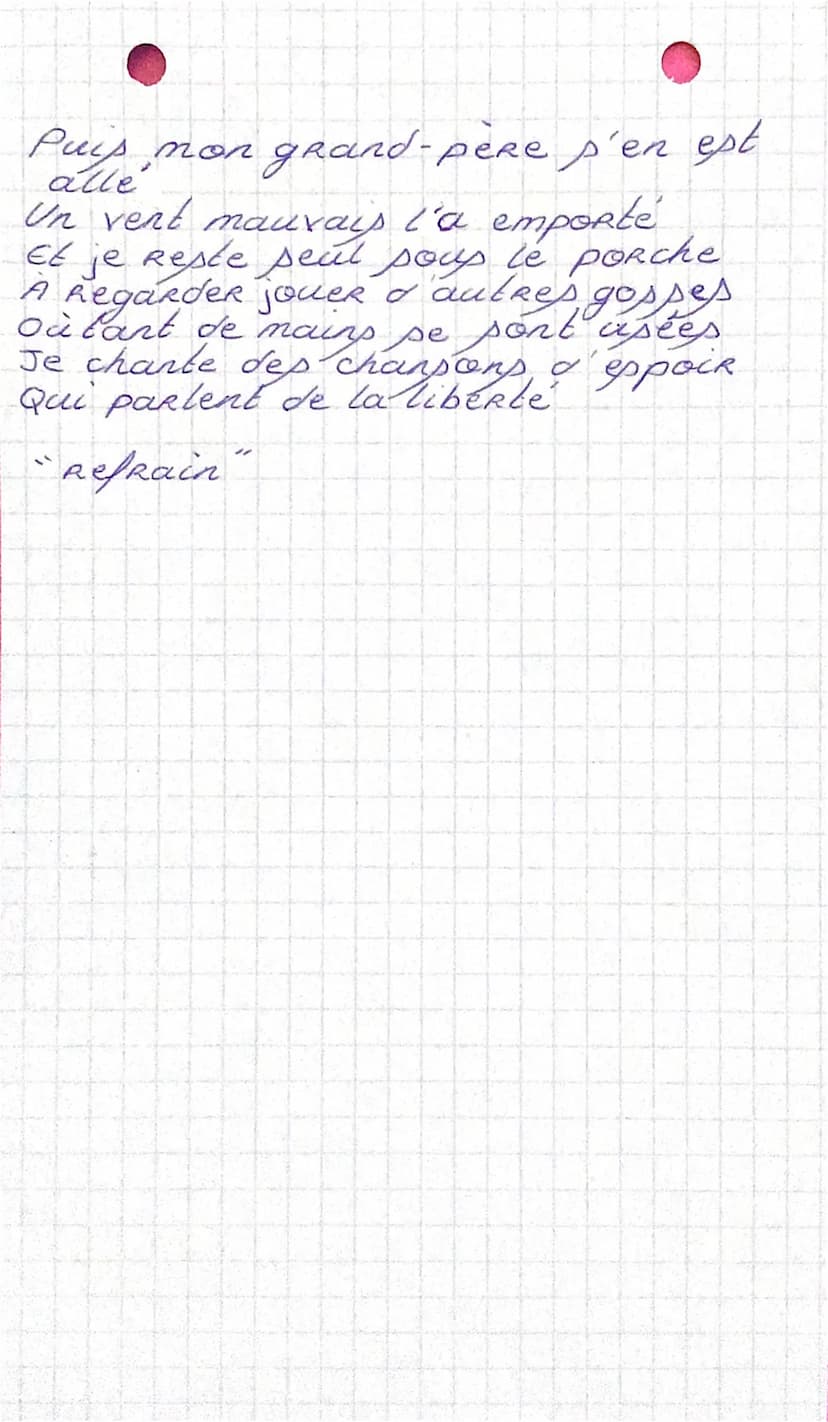 Puis mon grand-père s'en est
allé
Un vent mauvais l'a emporté
Et je reste seul sous le porche
À regarder jouer d'autres gosses
Où tant de mains se sont usées
Je chante des chansons d'espoir
Qui parlent de la liberté
"refrain"